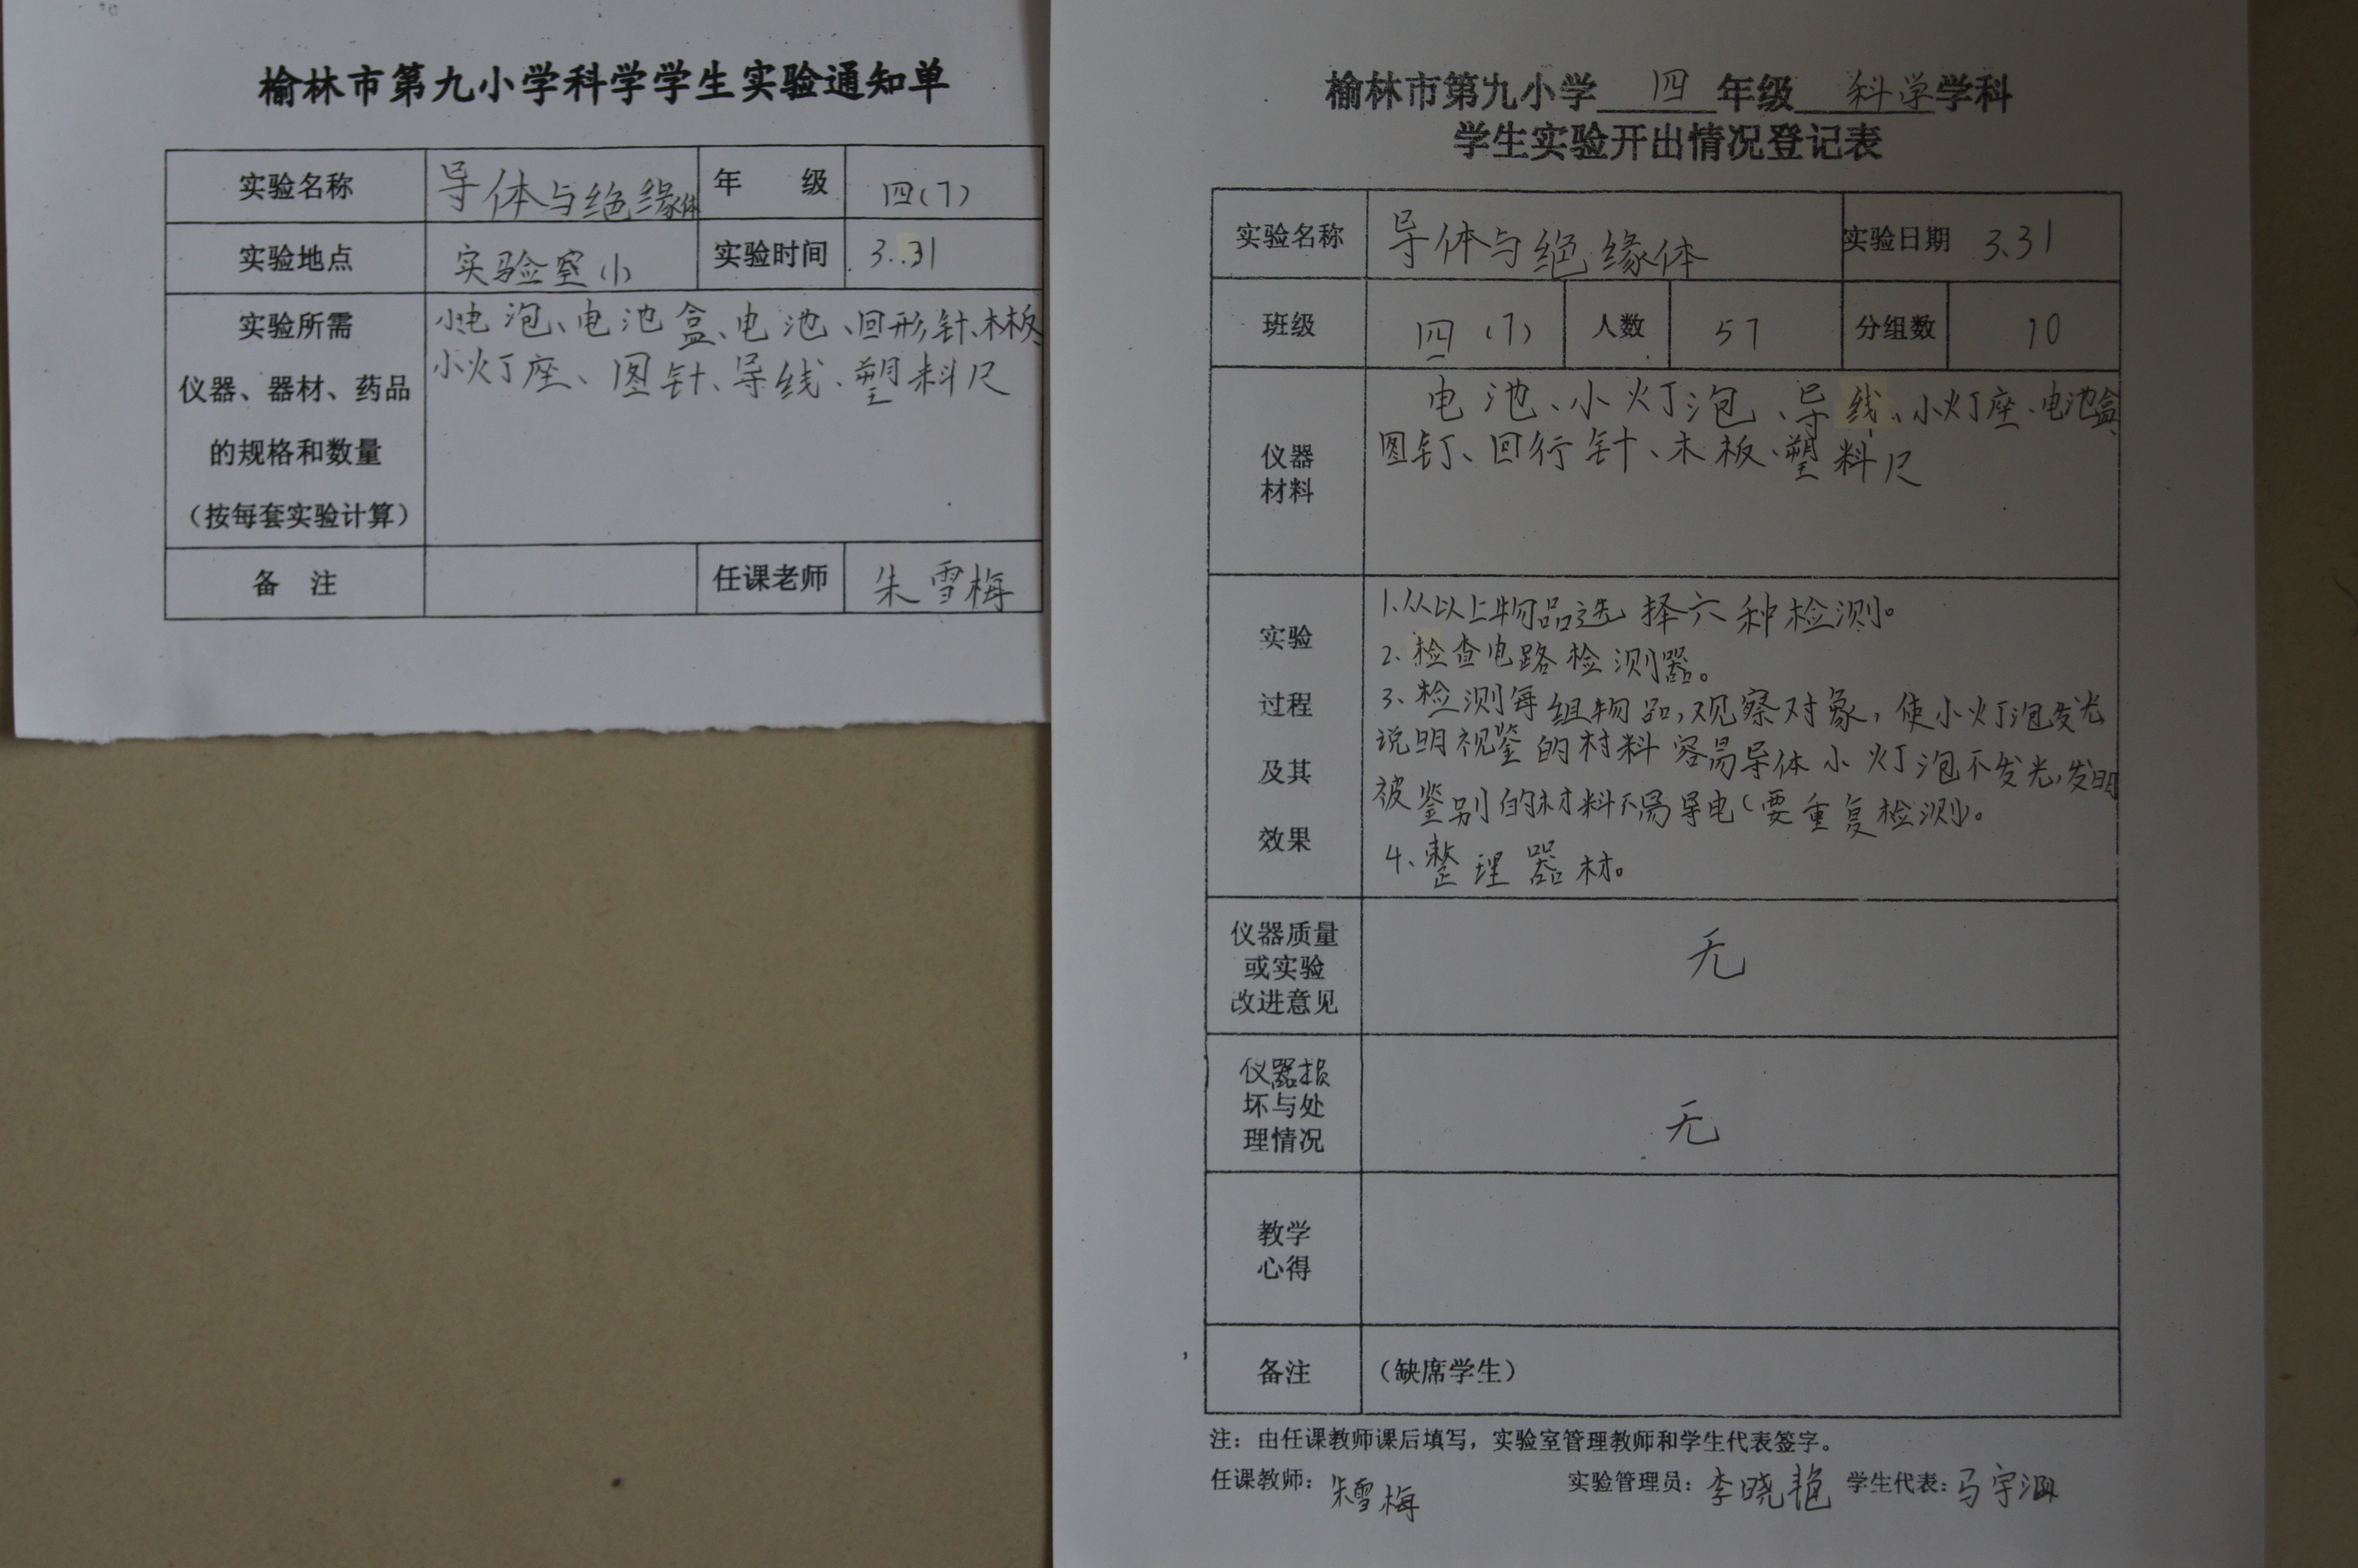 榆林市第九小学科学学生实验通知单
实验名称 导体与绝缘体 年 级 四(7)
实验地点 实验室(1) 实验时间 3.31
实验所需
仪器、器材、药品
的规格和数量
（按每套实验计算）
小电泡、电池盒、电池、回形针、木板、
小灯座、图针、导线、塑料尺
备 注 任课老师 朱雪梅
榆林市第九小学 四 年级 科学 学科
学生实验开出情况登记表
实验名称 导体与绝缘体 实验日期 3.31
班级 四(7) 人数 57 分组数 10
仪器
材料
电池、小灯泡、导线、小灯座、电池盒、
图钉、回行针、木板、塑料尺
实验
过程
及其
效果
1.从以上物品选择六种检测。
2、检查电路检测器。
3、检测每组物品,观察对象,使小灯泡发光
说明视鉴的材料容易导体小灯泡不发光,发明
被鉴别的材料不易导电(要重复检测)。
4、整理器材。
仪器质量
或实验
改进意见
无
仪器损
坏与处
理情况
无
教学
心得
备注 （缺席学生）
注：由任课教师课后填写，实验室管理教师和学生代表签字。
任课教师: 朱雪梅 实验管理员: 李晓艳 学生代表: 马宇